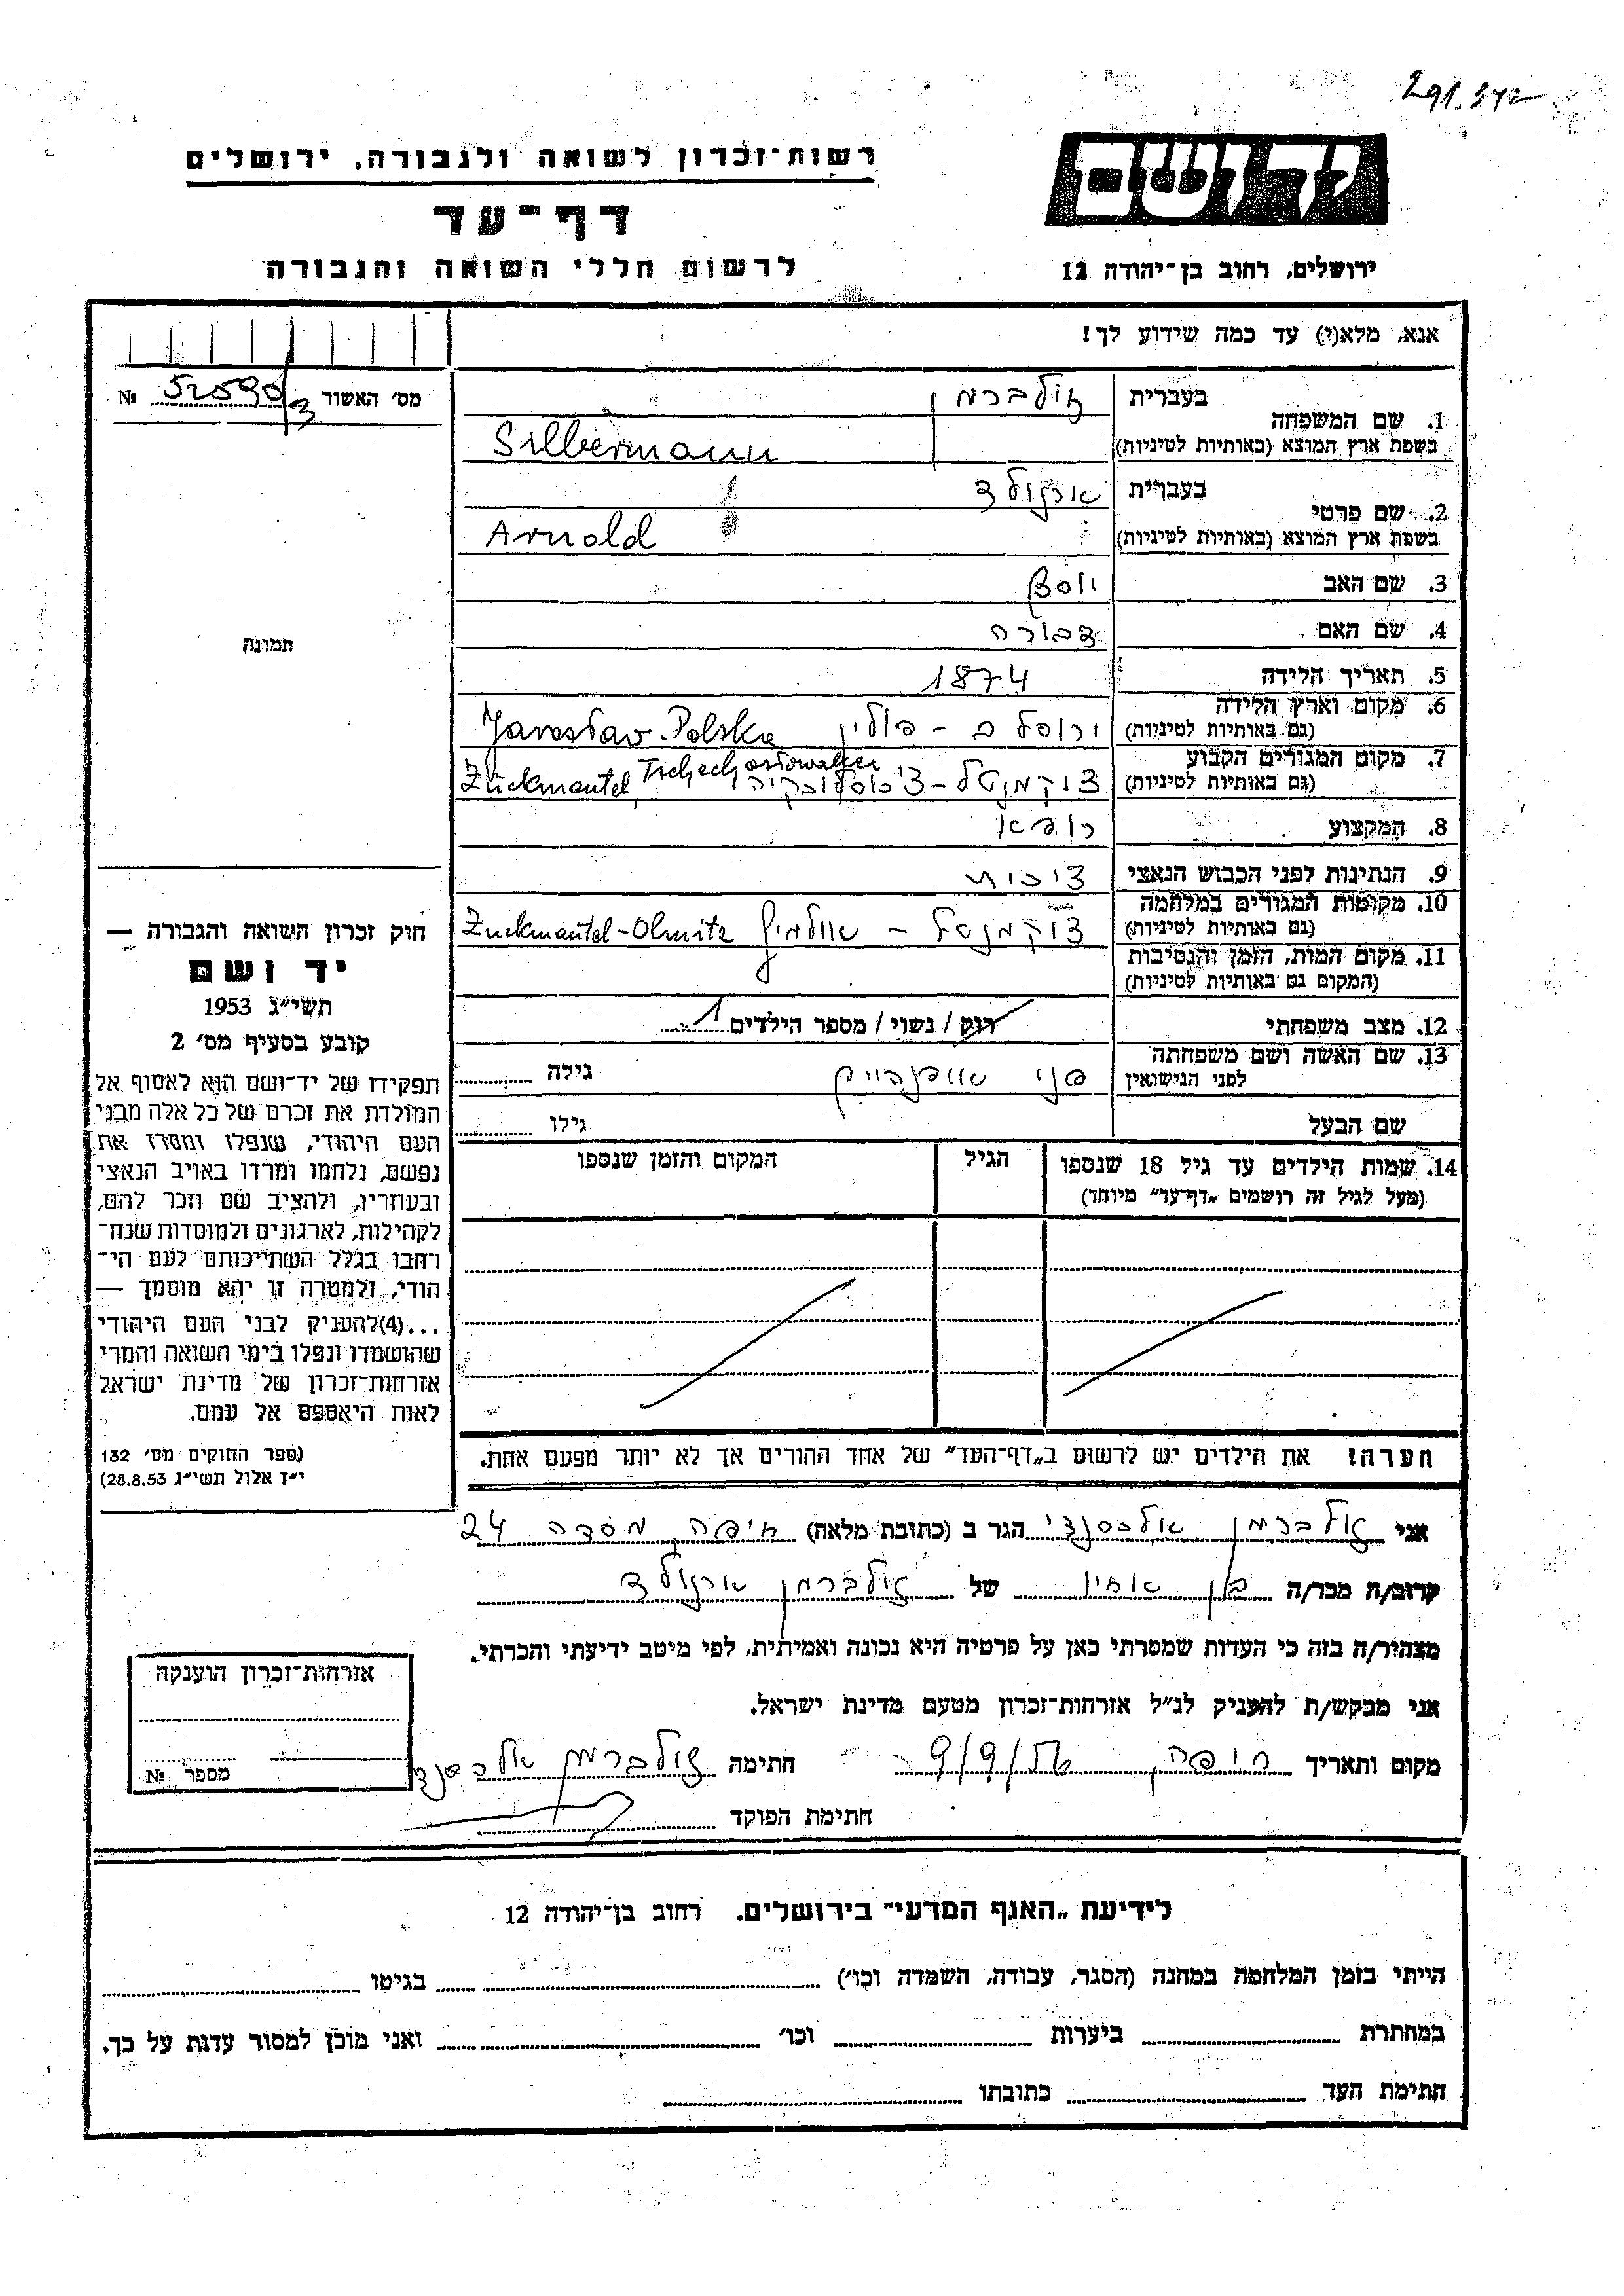 291.372
יד ושם
רשות־זכרון לשואה ולגבורה, ירושלים
דף־עד
לרשום חללי השואה והגבורה
ירושלים, רחוב בן־יהודה 12
אנא, מלא(י) עד כמה שידוע לך!
מס׳ האשור 52590/3 №
1. שם המשפחה בעברית זילברמן
בשפת ארץ המוצא (באותיות לטיניות) Silbermann
2. שם פרטי בעברית ארנולד
בשפת ארץ המוצא (באותיות לטיניות) Arnold
3. שם האב יוסף
4. שם האם דבורה
תמונה
5. תאריך הלידה 1874
6. מקום וארץ הלידה
(גם באותיות לטיניות) ירוסלב - פולין Jaroslav-Polska
7. מקום המגורים הקבוע
(גם באותיות לטיניות) צוקמנטל - צ'כוסלובקיה Zuckmantel, Tschechoslowakei
8. המקצוע רופא
9. הנתינות לפני הכבוש הנאצי צ'כית
10. מקומות המגורים במלחמה
(גם באותיות לטיניות) צוקמנטל - אולמיץ Zuckmantel-Olmitz
11. מקום המות, הזמן והנסיבות
(המקום גם באותיות לטיניות)
12. מצב משפחתי רוק / נשוי / מספר הילדים 1
13. שם האשה ושם משפחתה
לפני הנישואין פני אופנהיים גילה
שם הבעל גילו
14. שמות הילדים עד גיל 18 שנספו הגיל המקום והזמן שנספו
(מעל לגיל זה רושמים „דף־עד״ מיוחד)
הערה! את הילדים יש לרשום ב„דף־העד״ של אחד ההורים אך לא יותר מפעם אחת.
חוק זכרון השואה והגבורה —
יד ושם
תשי״ג 1953
קובע בסעיף מס׳ 2
תפקידו של יד־ושם הוא לאסוף אל
המולדת את זכרם של כל אלה מבני
העם היהודי, שנפלו ומסרו את
נפשם, נלחמו ומרדו באויב הנאצי
ובעוזריו, ולהציב שם וזכר להם,
לקהילות, לארגונים ולמוסדות שנח־
רבו בגלל השתייכותם לעם הי־
הודי, ולמטרה זו יהא מוסמך —
...(4)להעניק לבני העם היהודי
שהושמדו ונפלו בימי השואה והמרי
אזרחות־זכרון של מדינת ישראל
לאות היאספם אל עמם.
(ספר החוקים מס׳ 132
י״ז אלול תשי״ג 28.8.53)
אני זילברמן אלכסנדר הגר ב (כתובת מלאה) חיפה, מסדה 24
קרוב/ה מכר/ה בן אחיו של זילברמן ארנולד
מצהיר/ה בזה כי העדות שמסרתי כאן על פרטיה היא נכונה ואמיתית, לפי מיטב ידיעתי והכרתי.
אני מבקש/ת להעניק לנ״ל אזרחות־זכרון מטעם מדינת ישראל.
מקום ותאריך חיפה 9/9/56 חתימה זילברמן אלכסנדר
חתימת הפוקד
אזרחות־זכרון הוענקה
מספר №
לידיעת „האגף המדעי״ בירושלים. רחוב בן־יהודה 12
הייתי בזמן המלחמה במחנה (הסגר, עבודה, השמדה וכו׳) בגיטו
במחתרת ביערות וכו׳ ואני מוכן למסור עדות על כך.
חתימת העד כתובתו